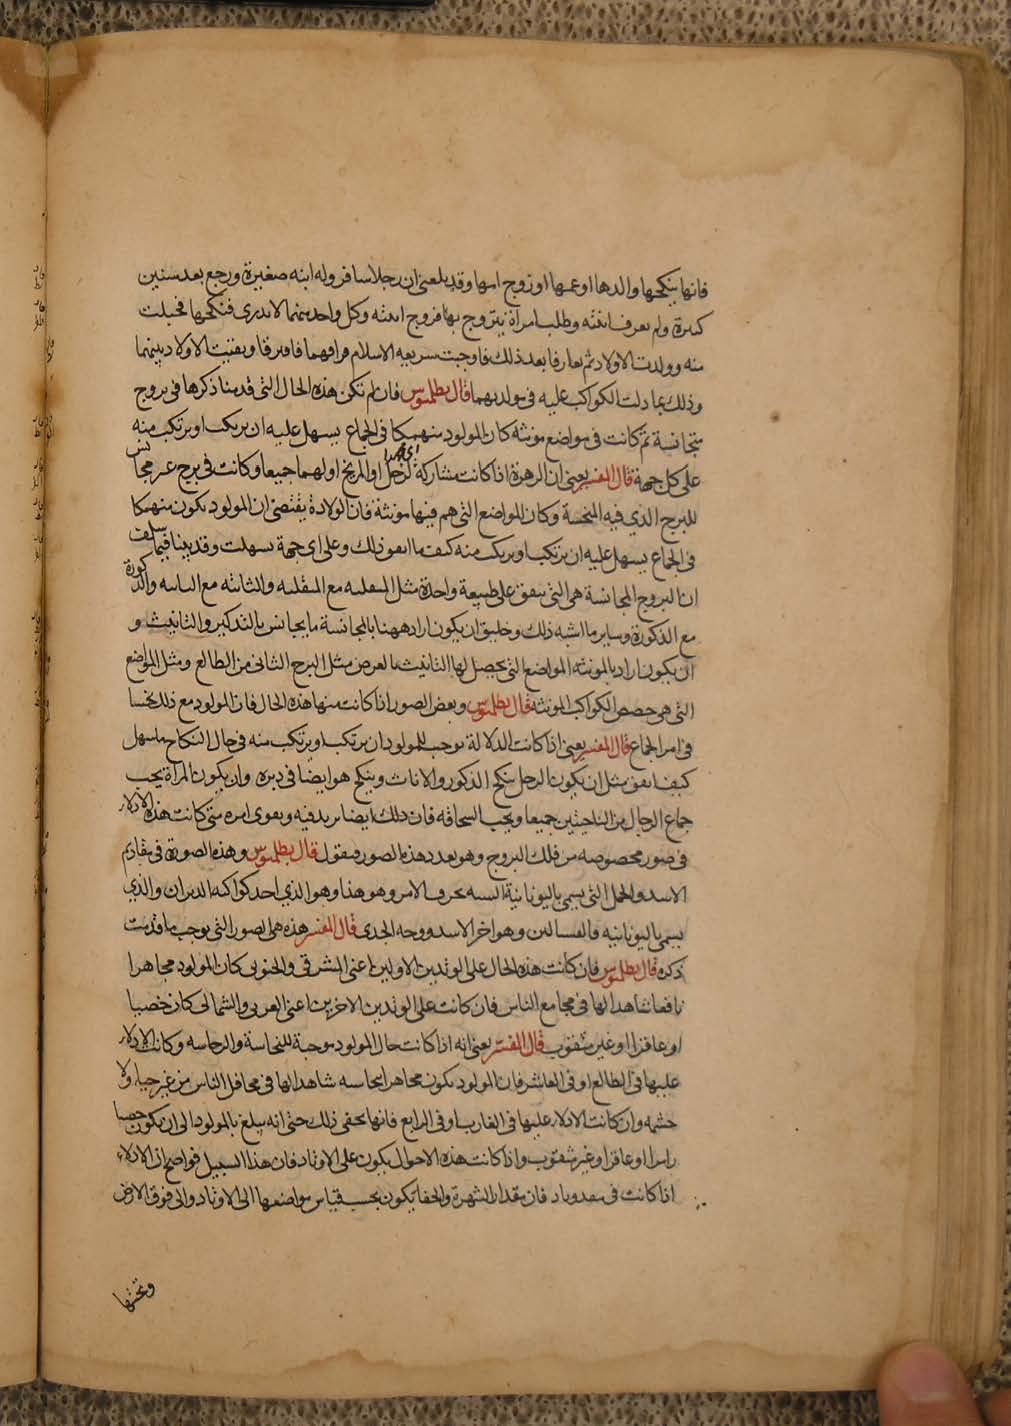 فانها ينكحها والدها او عمها او زوج امها وقد بلغنى ان رجلا سافر وله ابنه صغيرة ورجع بعد سنين
كبيرة ولم يعرف ابنته وطلب امراة يتزوج بها فزوج ابنته وكل واحد منهما لا يدرى فنكحها فحبلت
منه وولدت الاولاد ثم تعارفا بعد ذلك فاوجبت شريعه الاسلام فراقهما فافترقا وبقيت الاولاد بينهما
وذلك بما دلت الكواكب عليه فى مولديهما قال بطلميوس فان لم تكن هذه الحال التى قدمنا ذكرها فى بروج
متجانسة ثم كانت فى مواضع مونثه كان المولود منهمكا فى الجماع يسهل عليه ان يرتكب او يرتكب منه
على كل جهة قال المفسر يعنى ان الزهرة اذا كانت مشاركة لزحل او المريخ او لهما جميعا وكانت فى برج غير مجانس
للبرج الذى فيه المنحسة وكان المواضع التى هم فيها مونثة فان الولادة يقتضى ان المولود يكون منهمكا
فى الجماع يسهل عليه ان يرتكب او يرتكب منه كيف ما اتفق ذلك وعلى اى جهة تسهلت وقد بينا فيما سلف
ان البروج المجانسة هى التى تتفق على طبيعة واحدة مثل المنقلبه مع المنقلبه والثابته مع الثابته والذكورة
مع الذكورة وساير ما اشبه ذلك وخليق ان يكون اراد ههنا بالمجانسة ما يجانس بالتذكير والتانيث و
ان يكون اراد بالمونثه المواضع التى يحصل لها التانيث بالعرض مثل البرج الثانى من الطالع ومثل المواضع
التى هى حصص الكواكب المونثه قال بطلميوس وبعض الصور اذا كانت منها هذه الحال فان المولود مع ذلك نجسا
فى امر الجماع قال المفسر يعنى اذا كانت الدلالة توجب للمولود ان يرتكب او يرتكب منه فى حال النكاح بما سهل
كيف اتفق مثل ان يكون الرجل ينكح الذكور والاناث وينكح هو ايضا فى دبره وان يكون المراة يحب
جماع الرجال من الناحيتين جميعا ويحب السحاقه فان ذلك ايضا يزيد فيه ويقوى امره متى كانت هذه الادلاء
فى صور مخصوصه من فلك البروج وهو يعدد هذه الصور فيقول قال بطلميوس وهذه الصورة فى مقاديم
الاسد والحمل التى يسمى باليونانية وهو هذا وهو الذى احد كواكبه الدبران والذى
يسمى باليونانيه وهو اخر الاسد ووجه الجدى قال المفسر هذه هى الصور التى يوجب ما قدمت
ذكره قال بطلميوس فان كانت هذه الحال على الوتدين الاولين اعنى الشرقى والجنوبى كان المولود مجاهرا
شاهدا لها فى مجامع الناس فان كانت على الوتدين الاخرين اعنى الغربى والشمالى كان خصيا
او عاقرا او غير مثقوب قال المفسر يعنى انه اذا كانت حال المولود موجبة للنجاسة والرجاسه وكانت الادلاء
عليها فى الطالع او فى العاشر فان المولود يكون مجاهرا بنجاسه شاهدا لها فى محافل الناس من غير حياء ولا
حشمه وان كانت الادلاء عليها فى الغارب او فى الرابع فانها يخفى ذلك حتى انه يبلغ بالمولود الى ان يكون خصيا
او عاقرا او غير مثقوب واذا كانت هذه الاحوال يكون على الاوتاد فان هذا السبيل فواضح ان الادلاء
اذا كانت فى فان مقدار الشهرة والخفا يكون بحسب قياس مواضعها الى الاوتاد والى فوق الارض
وتحتها